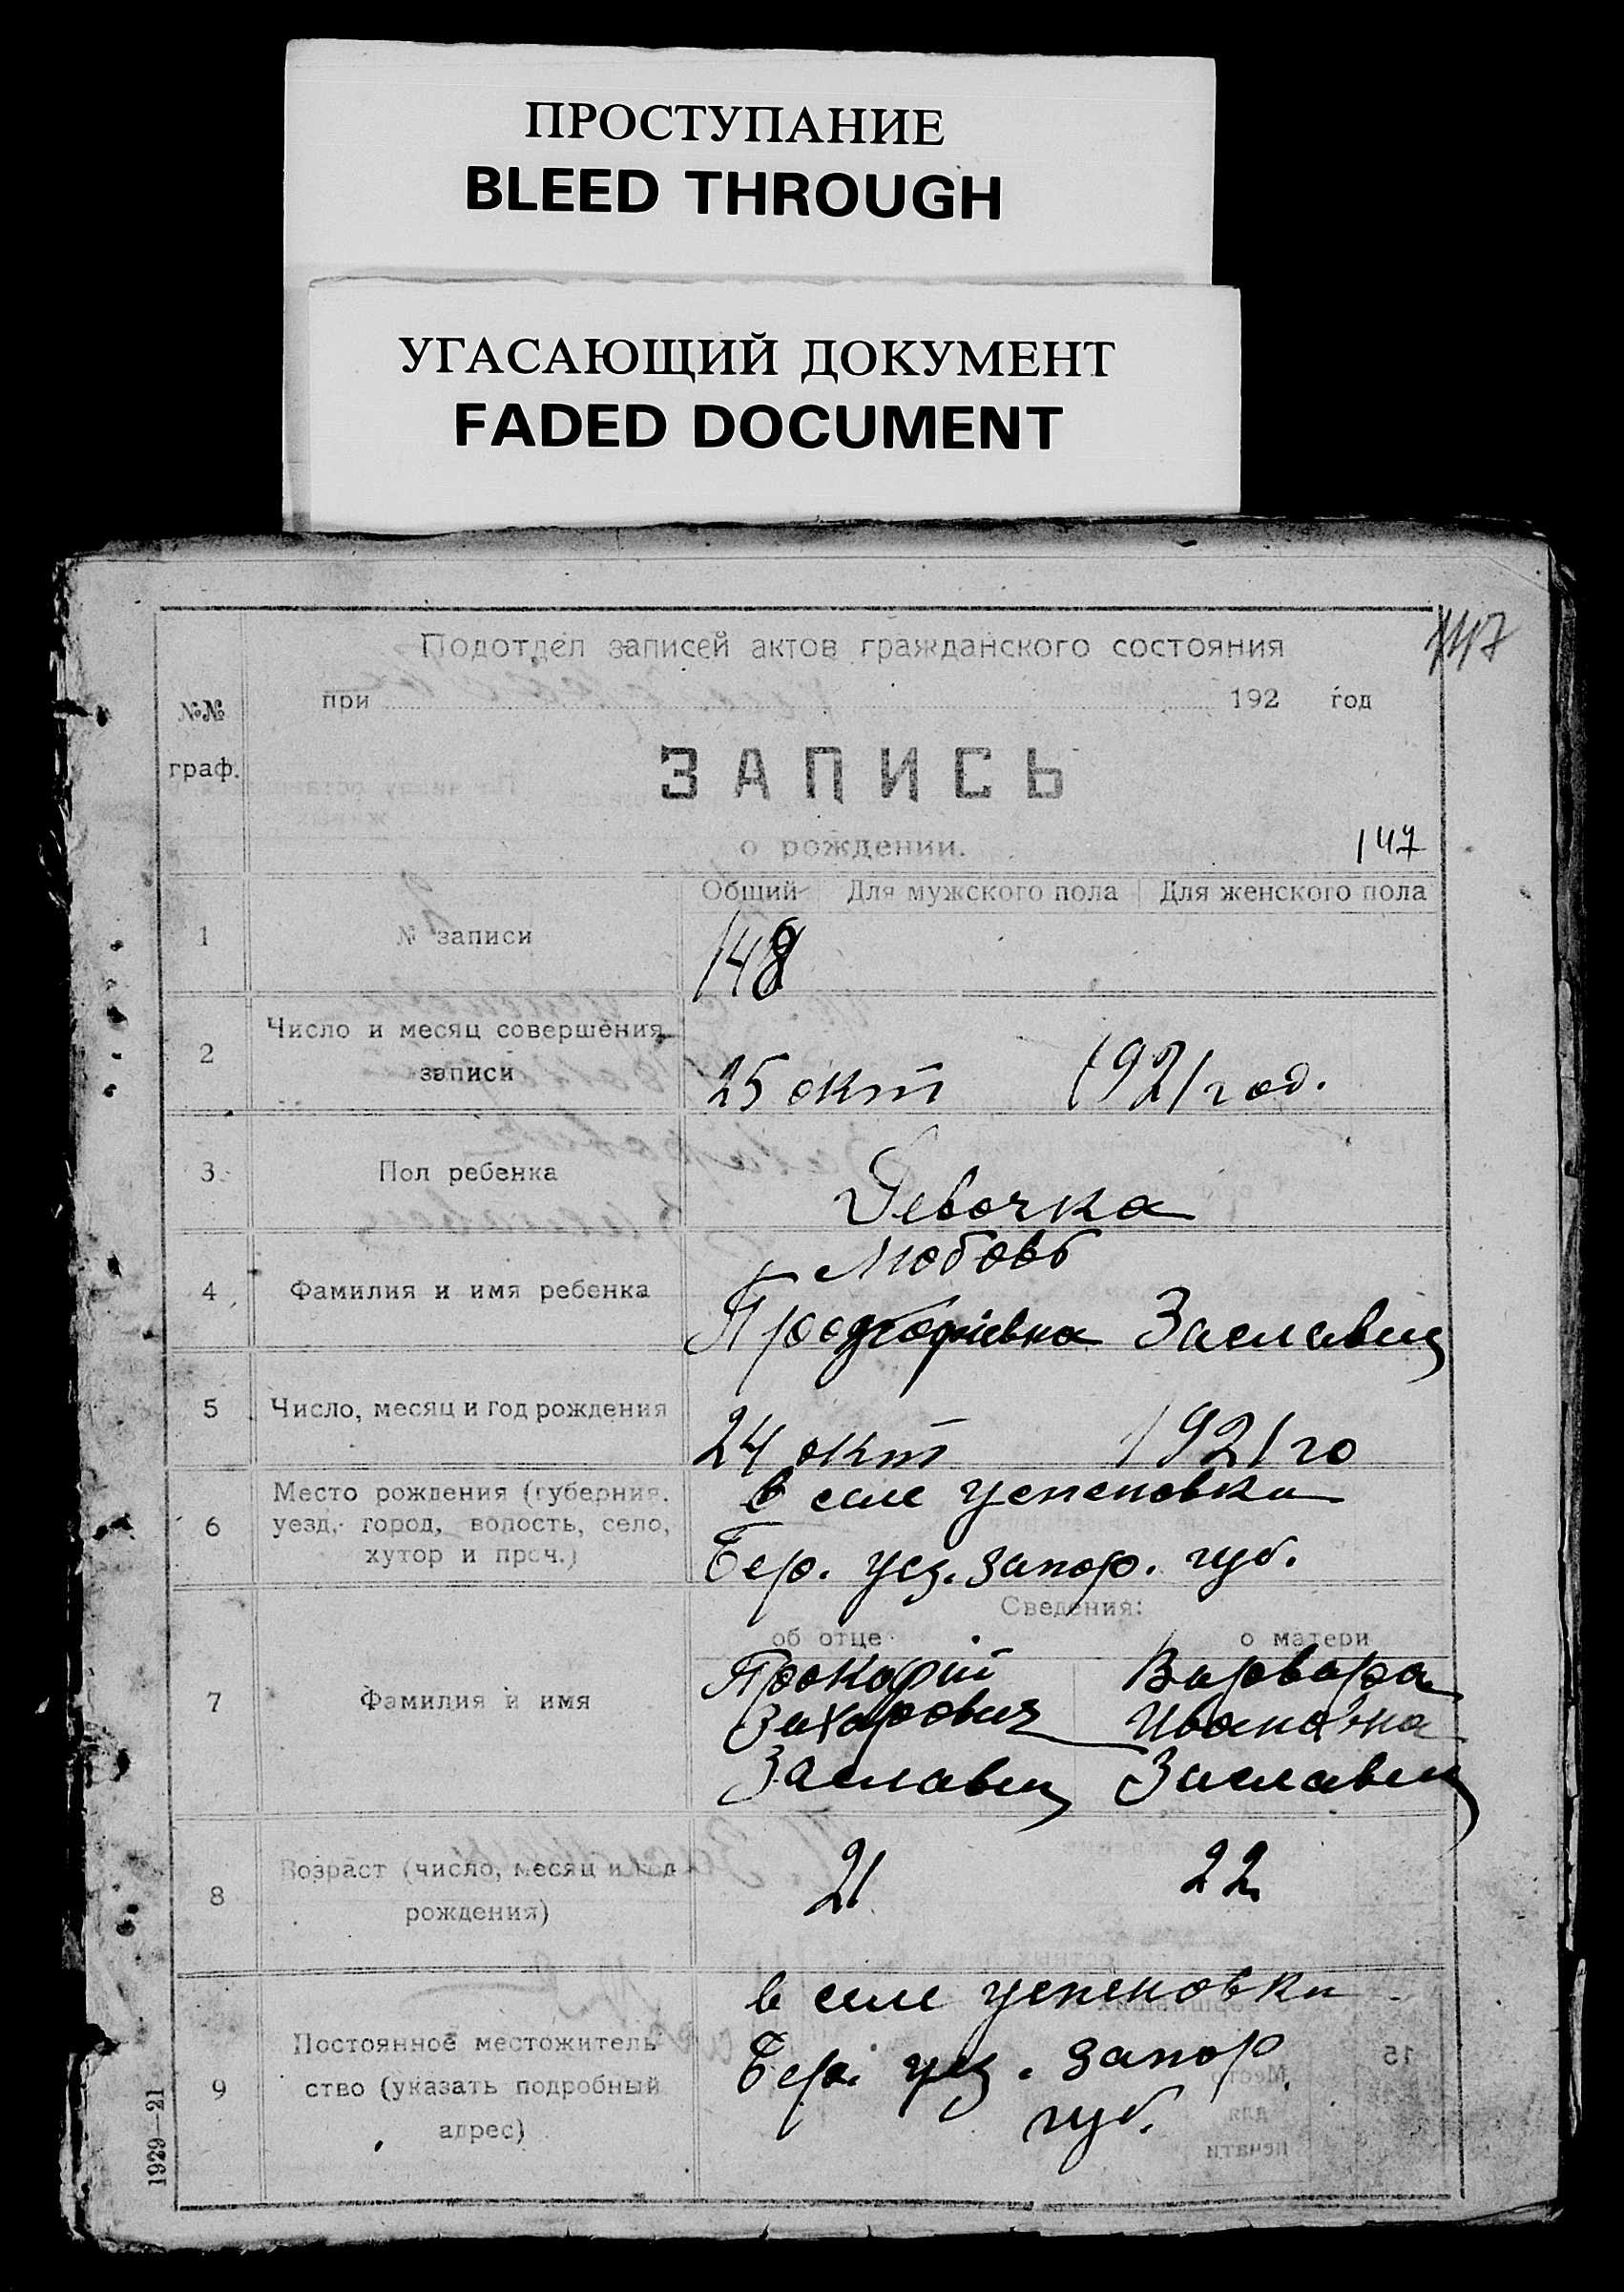 ПРОСТУПАНИЕ
BLEED THROUGH
УГАСАЮЩИЙ ДОКУМЕНТ
FADED DOCUMENT
147
Подотдел записей актов гражданского состояния
№№ граф.
при 192 год
ЗАПИСЬ
о рождении.
147
Общий Для мужского пола Для женского пола
1 № записи 148
2 Число и месяц совершения
записи
25 окт 1921 год.
3 Пол ребенка Девочка
4 Фамилия и имя ребенка
Любовь
Заславец
5 Число, месяц и год рождения 24 окт 1921 го
6 Место рождения (губерния,
уезд, город, волость, село,
хутор и проч.)
в селе успеновки
Бер. уез. запор. губ.
Сведения:
об отце о матери
7 Фамилия и имя
Прокофий Варвара
Захарович Ивановна
Заславец Заславец
8 Возраст (число, месяц и год
рождения)
21 22
9 Постоянное местожитель-
ство (указать подробный
адрес)
в селе успеновки
Бер. уез. запор
губ.
15
Место
для
печати
1929—21